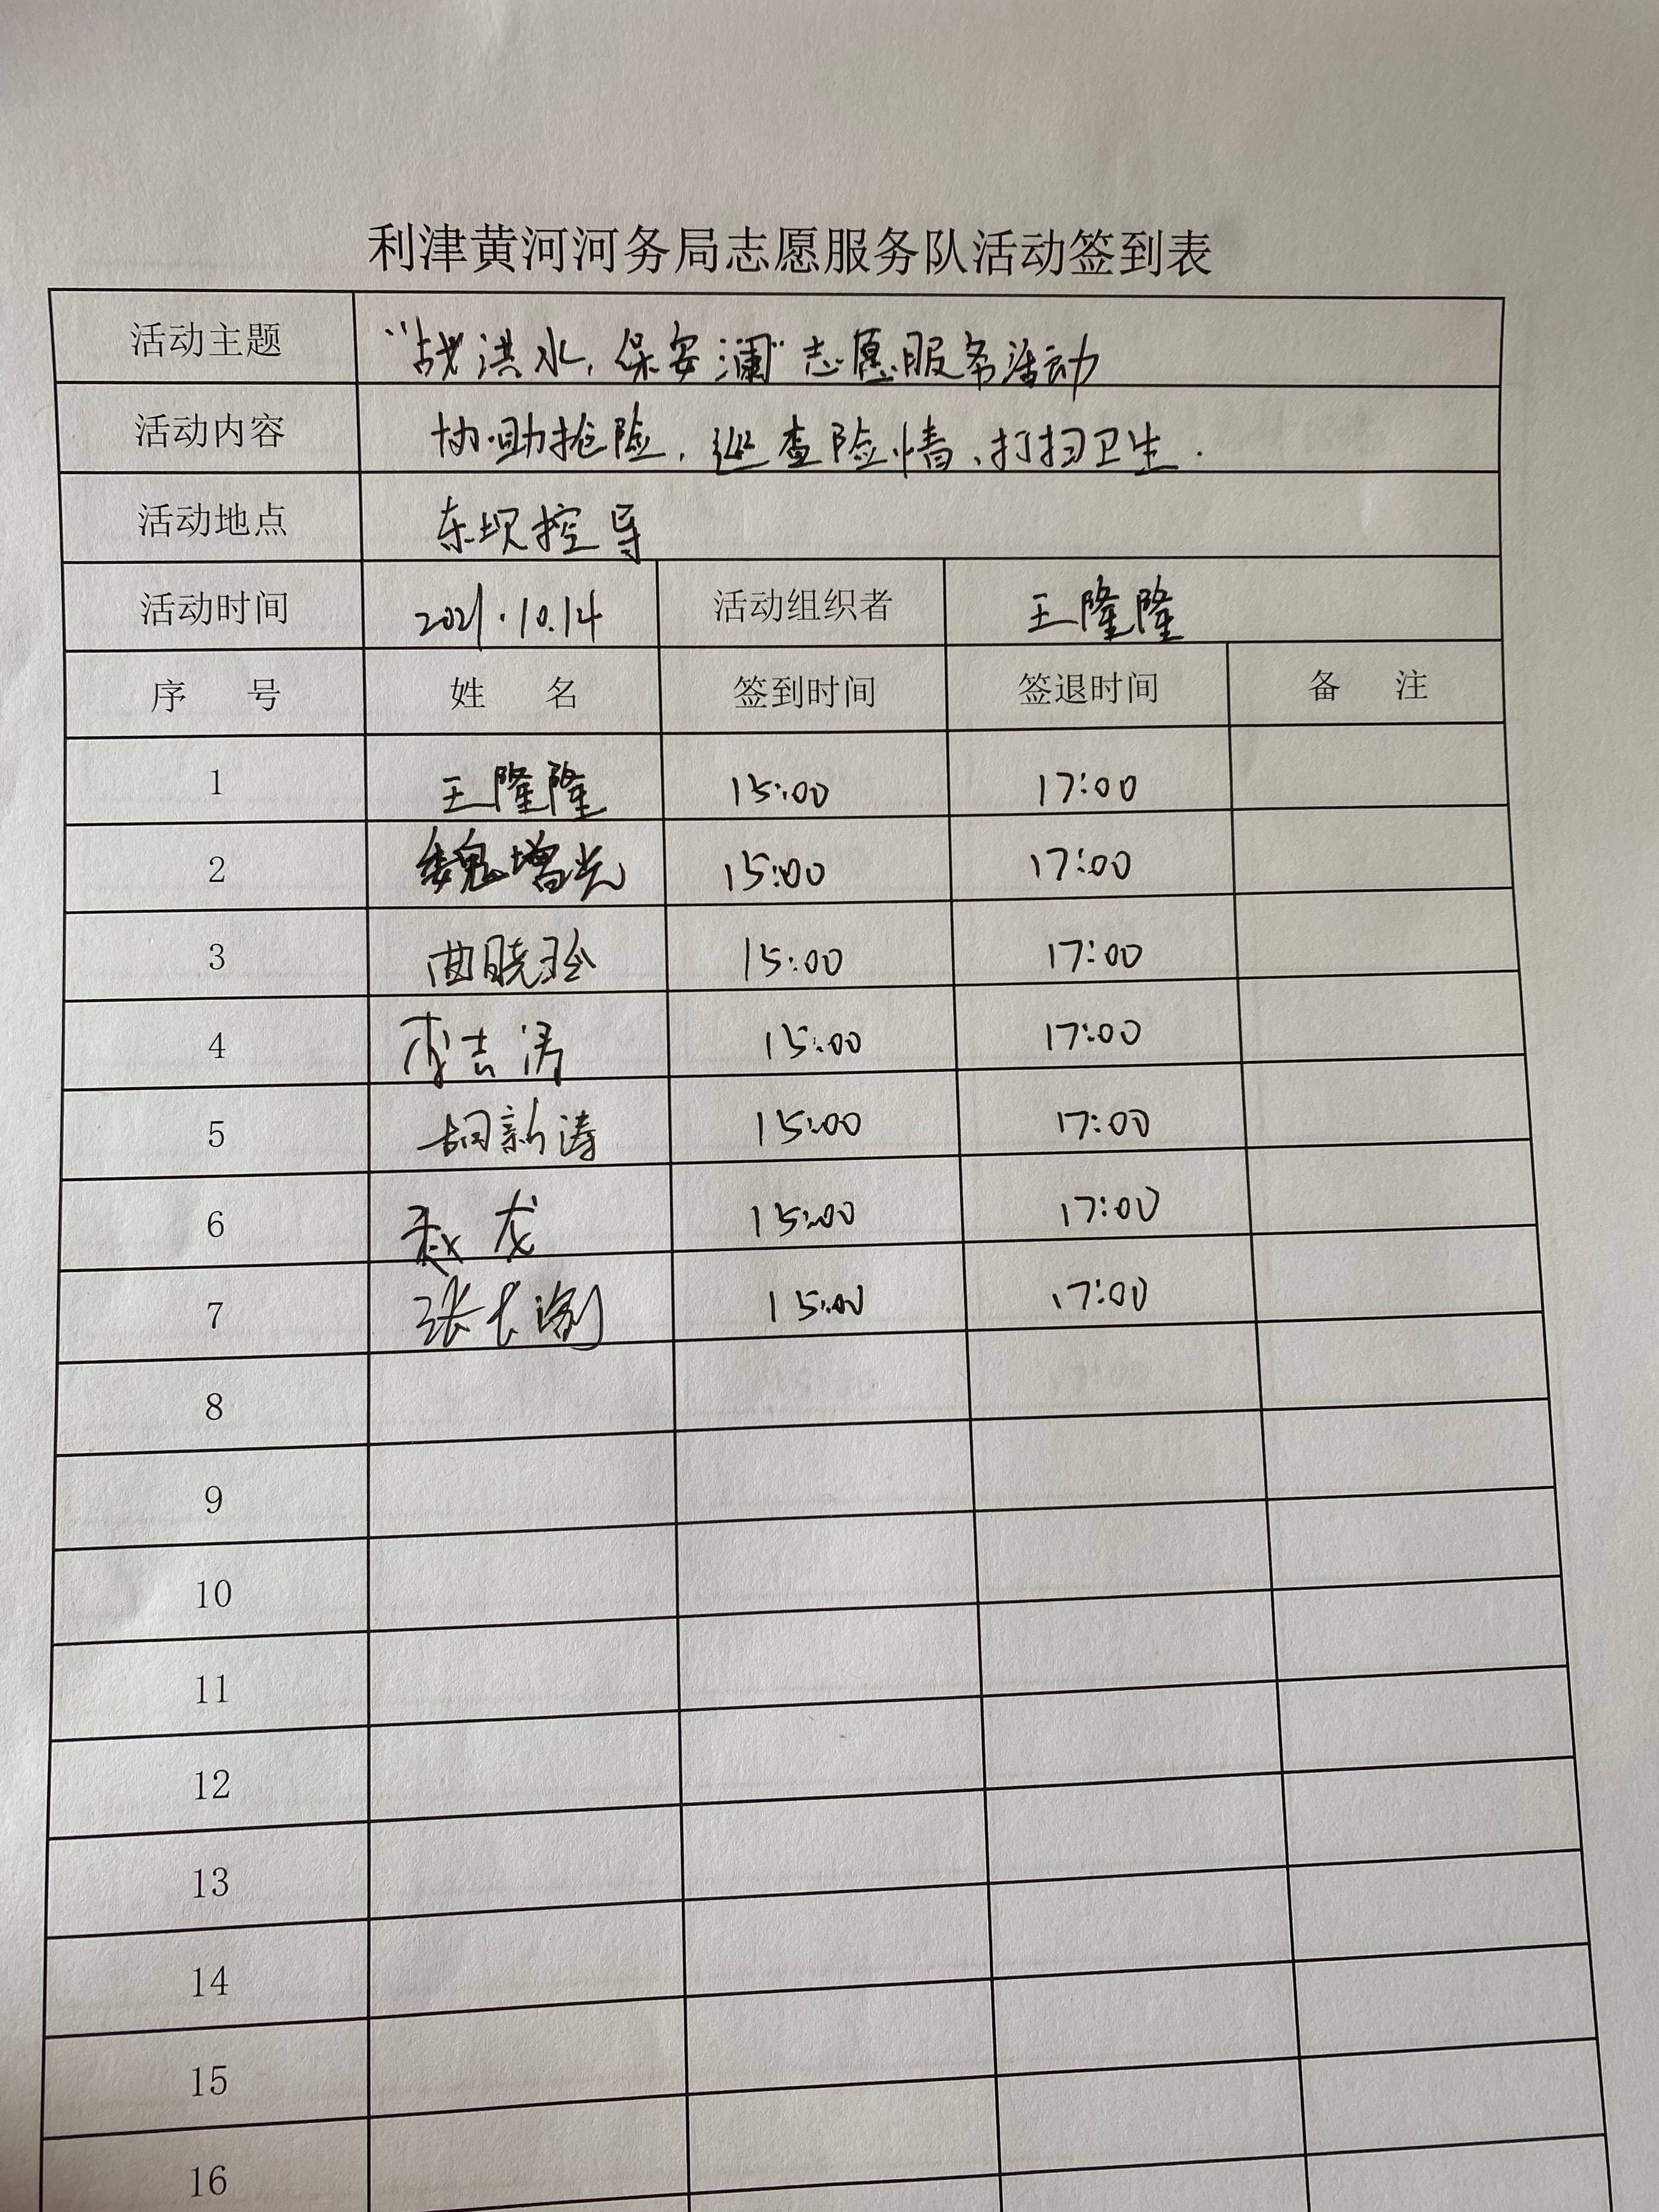 利津黄河河务局志愿服务队活动签到表
活动主题 “战洪水,保安澜”志愿服务活动
活动内容 协助抢险,巡查险情、打扫卫生.
活动地点 东坝控导
活动时间 2021.10.14 活动组织者 王隆隆
序 号 姓 名 签到时间 签退时间 备 注
1 王隆隆 15:00 17:00
2 魏增光 15:00 17:00
3 曲晓玲 15:00 17:00
4 李吉涛 15:00 17:00
5 胡新涛 15:00 17:00
6 赵龙 15:00 17:00
7 张长 15:00 17:00
8
9
10
11
12
13
14
15
16